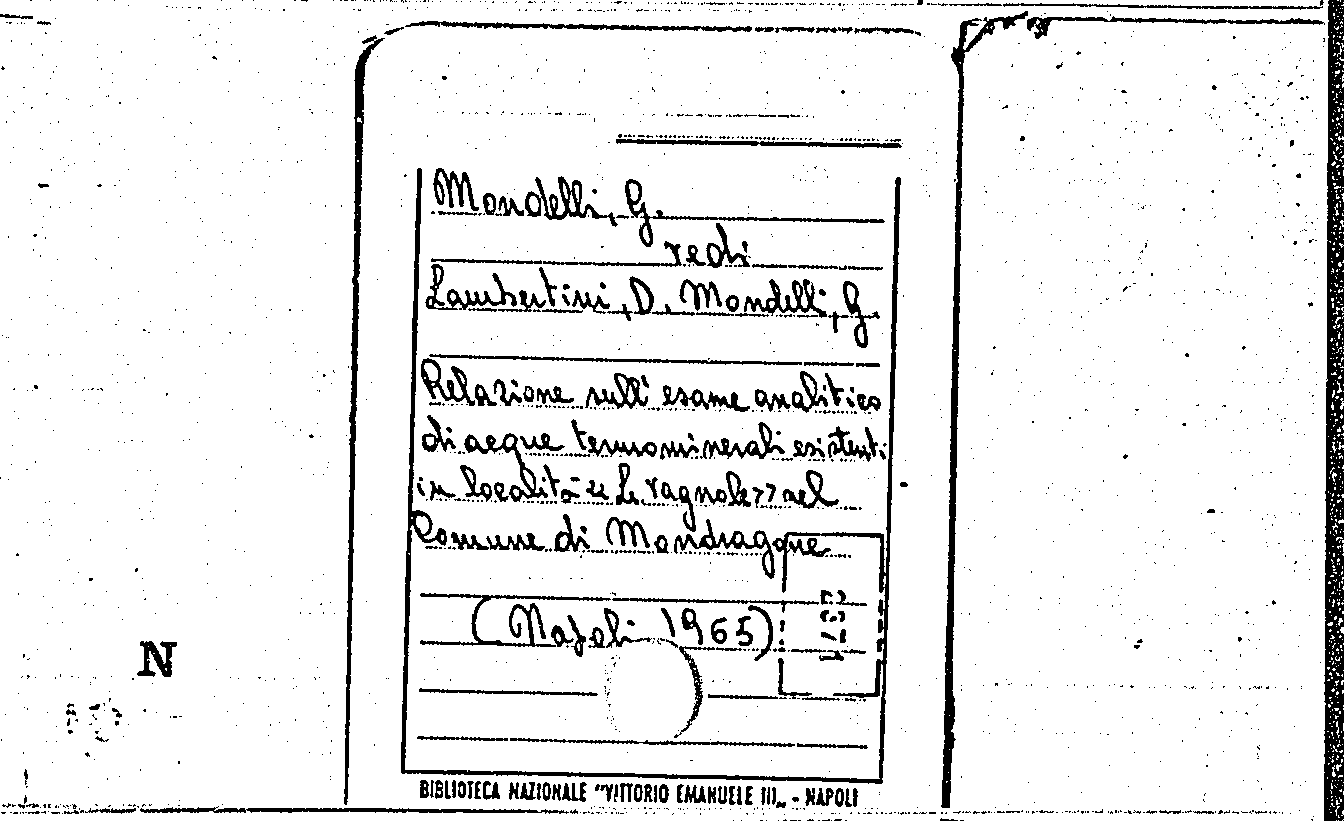 Mondelli, G.
vedi
Lambertini, D. Mondelli, G.
Relazione sull'esame analitico
di acque termominerali esistenti
in località << Le Vagnole >> nel
Comune di Mondragone
(Napoli 1965)
N
BIBLIOTECA NAZIONALE "VITTORIO EMANUELE III„ - NAPOLI